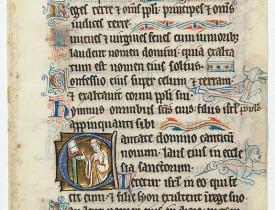 Reges terre et om̄s ppl̄i principes et om̄s
iudices terre
Iuuenes et uirgines senes cum iunioribus
laudent nomen domini quia exalta
tum est nomen eius solius
Confessio eius super celum et terram
et exaltauit cornu ppl̄i sui
Hymnus omnibus sc̄is eius filiis isrl̄ ppl̄o
appinquanti sibi
Cantate domino canticū
nouum laus eius in eccle
sia sanctorum
Letetur isrl̄ in eo qui fe
cit eum et filie syon exultent in rege suo